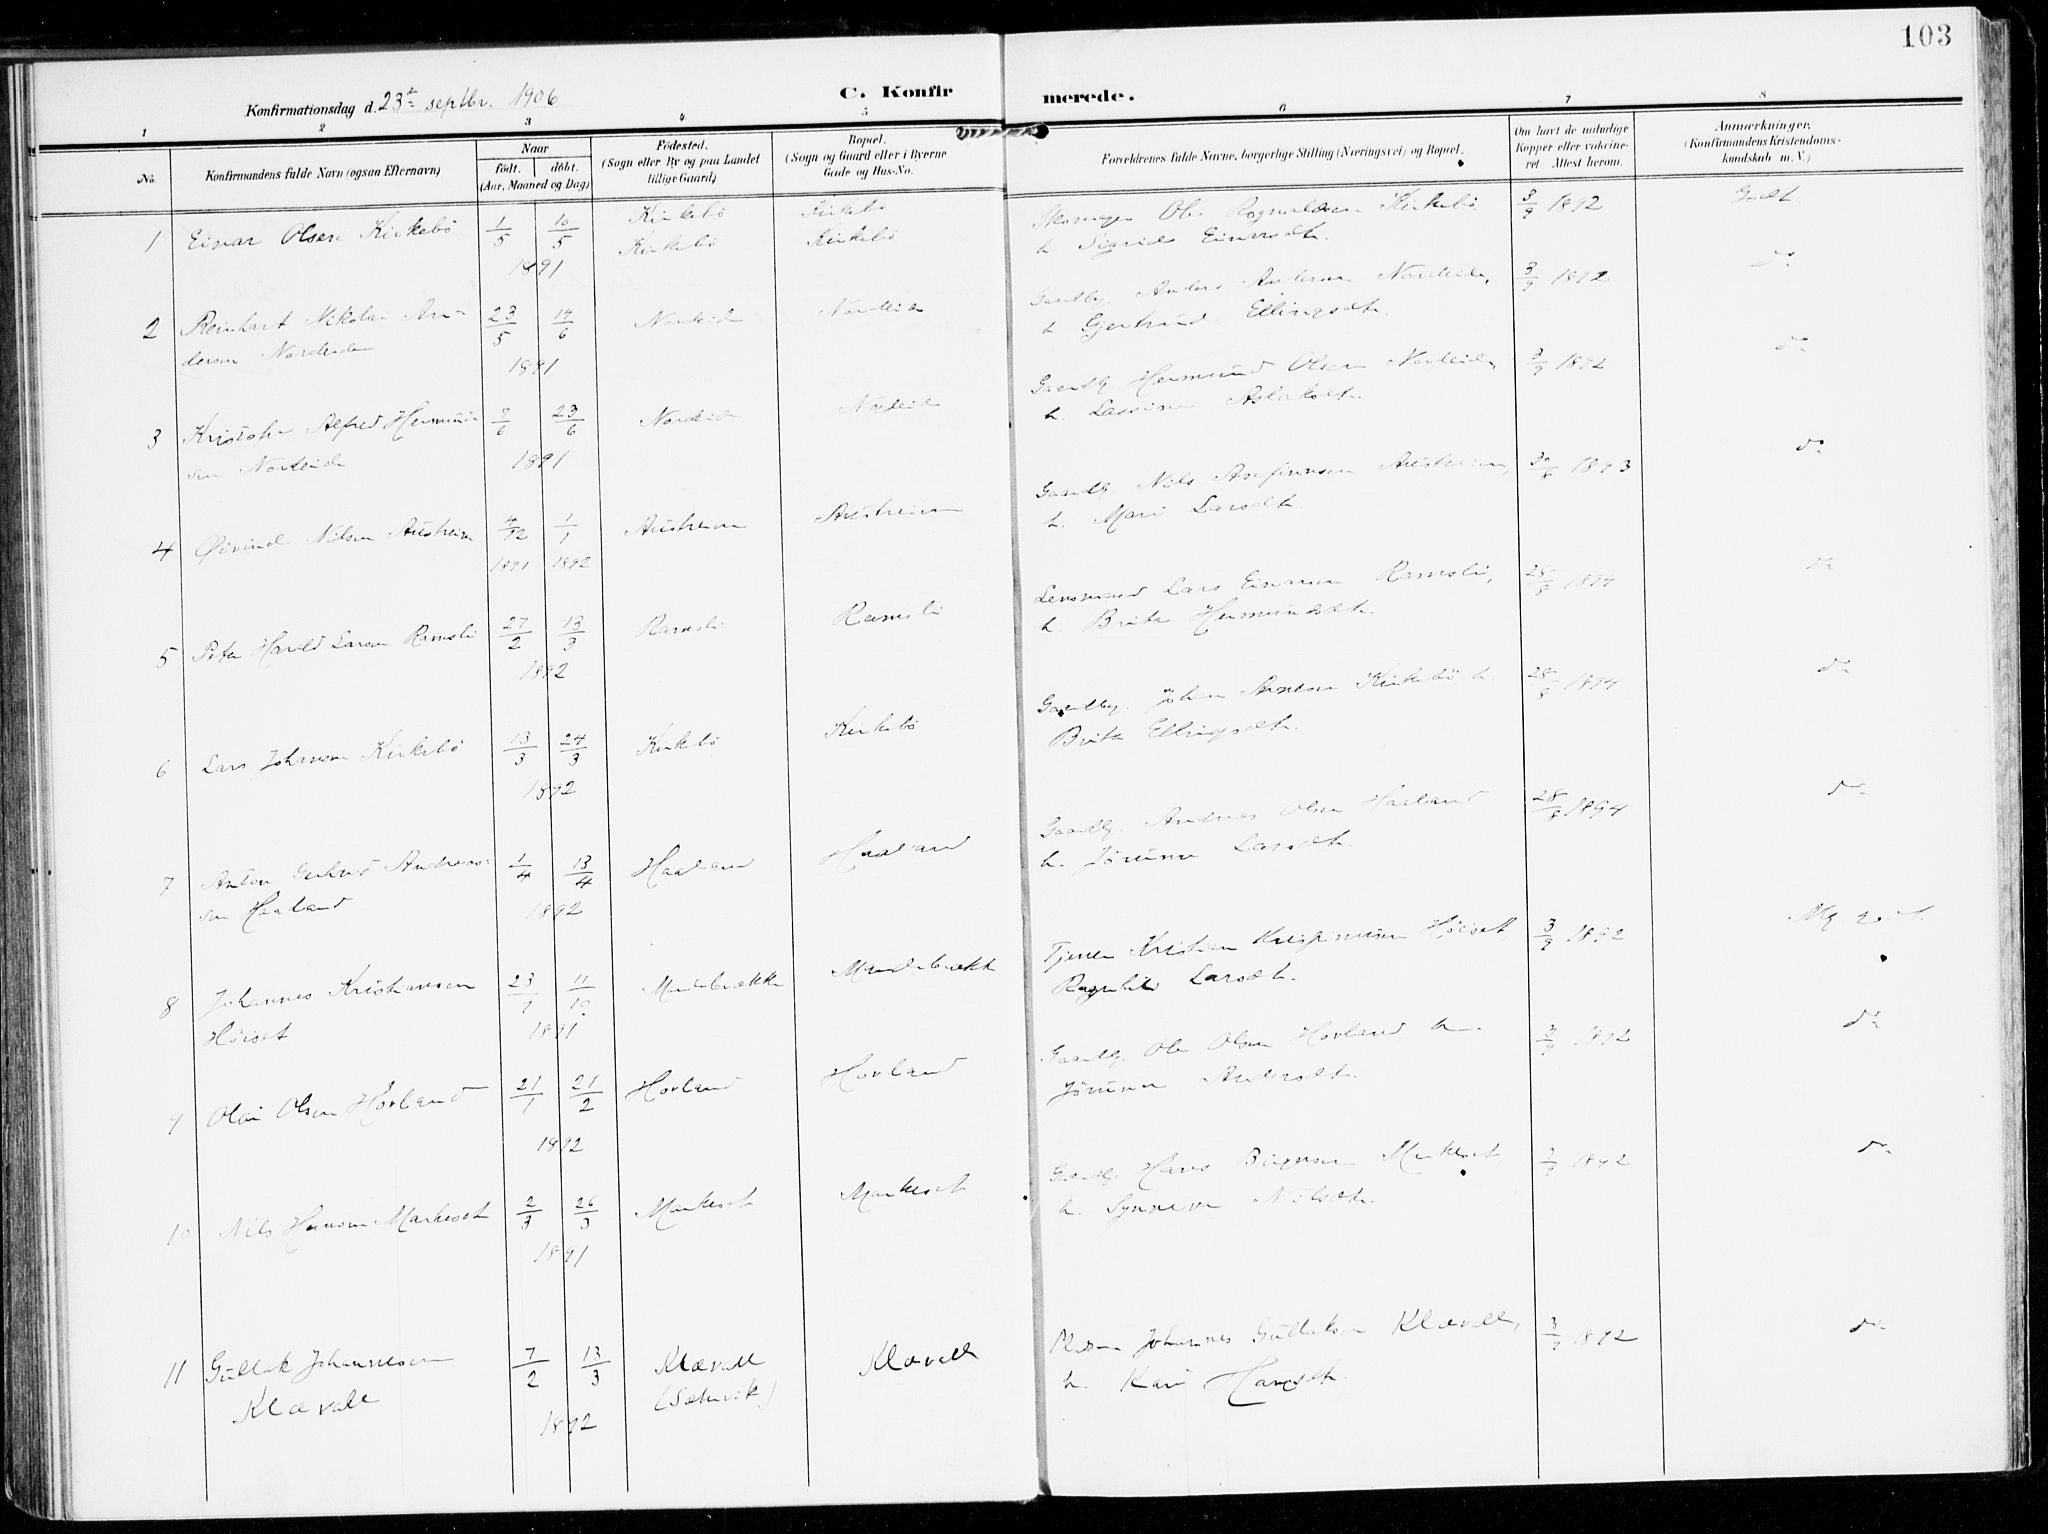 103
Konfirmationsdag d. 23de septbr. 1906
C. Konfirmerede.
1 2 3 4 5 6 7 8
No.
Konfirmandens fulde Navn (ogsaa Efternavn)
Naar
født. døbt.
(Aar, Maaned og Dag)
Fødested.
(Sogn eller By og paa Landet
tillige Gaard)
Bopæl.
(Sogn og Gaard eller i Byerne
Gade og Hus-No.
Forældrenes fulde Navne, borgerlige Stilling (Næringsvei) og Bopæl.
Om havt de naturlige
Kopper eller vaksine-
ret Attest herom.
Anmærkninger.
(Konfirmandens Kristendoms-
kundskab m. V.)
1 Einar Olsen Kirkebö 1/5 10/5 Kirkebö Kirkebö Skomager Ole Rognaldsen Kirkebö 3/9 1892 Godt
Kirkebö Kirkebö h. Sigrid Einarsdtr.
1891
2 Reinhart Nikolai An- 23/5 14/6 Nordeide Nordeide Gaardbr. Anders Andersen Nordeide, 3/9 1892 do
dersen Nordeide h. Gjertrud Ellingsdtr.
1891
3 Kristofer Alfred Hermund- 23/6 Nordeide Nordeide Gaardbr. Hermund Olsen Nordeide, 3/9 1892 do
sen Nordeide h. Aslaksdtr.
1891
4 Øivind Nilsen Austreim 4/12 1/1 Austreim Austreim Gaardbr. Nils Arnfinnsen Austreim, 30/8 1893 do
1891 1892 h. Mari Larsdtr.
5 Peter Harald Larsen Ramsli 27/2 13/3 Ramsli Ramsli Lensmand Lars Einarsen Ramsli, 28/8 1894 do
1892 h. Brita Hermundsdtr.
6 Lars Johansen Kirkebö 13/3 24/3 Kirkebö Kirkebö Gaardbr. Johan Arnesen Kirkebö h. 28/8 1894 do
1892 Brita Ellingsdtr.
7 Anton Gerhard Andreas- 1/4 13/4 Haaland Haaland Gaardbr. Andreas Olsen Haaland 28/8 1894 do
sen Haaland h. Jörunn Larsdtr.
1892
8 Johannes Kristiansen 11/10 Mandebrække Mandebrække Tjener Kristian Höiset 3/9 1892 Mg godt.
Höiset Ragnhild Larsdtr.
1891
9 Olai Olsen Hovland 21/1 21/2 Hovland Hovland Gaardbr. Ole Olsen Hovland h. 3/9 1892 do
1892 Jörunn Andersdtr.
10 Nils Hansen Markeset 2/3 26/3 Markeset Markeset Gaardbr. Hans Markeset 3/9 1892 do
1891 h. Synneva Nilsdtr.
11 Gullak Johannesen 7/2 13/3 Klævold Klævold Johannes Gullaksen Klævold, 3/9 1892 do
Klævold (Sætervik) h. Kari Hansdtr.
1892